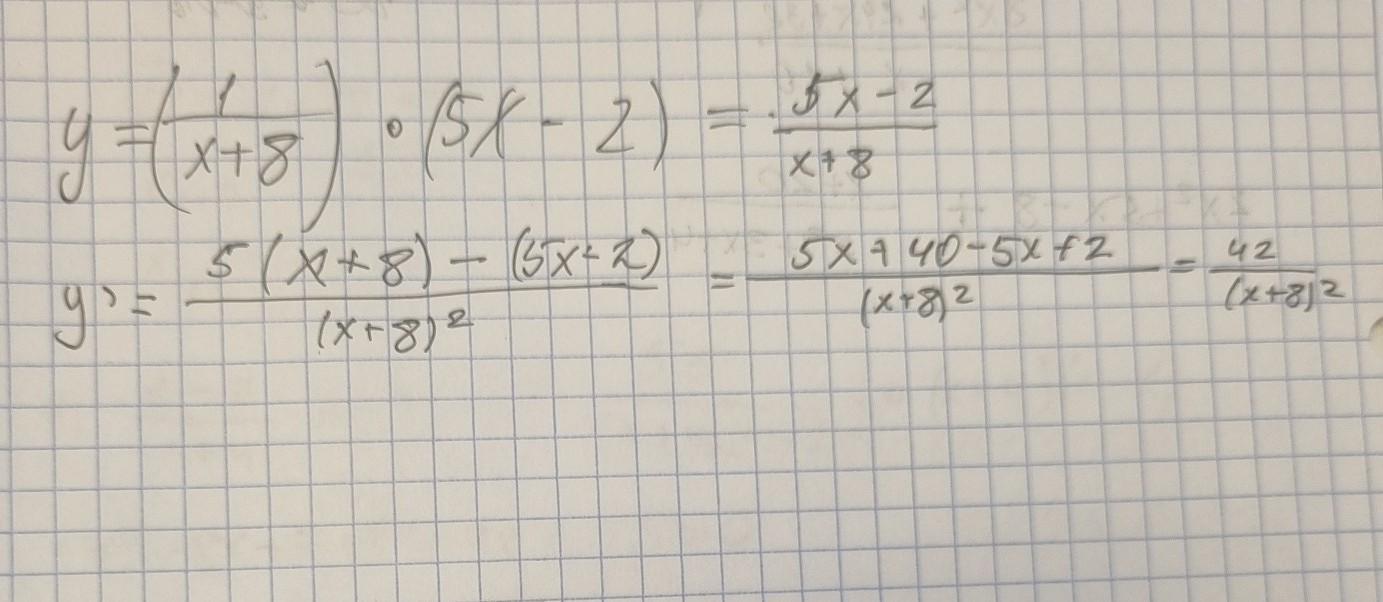 y = (1/(x+8)) • (5x - 2) = (5x - 2)/(x + 8)
y' = (5(x+8) - (5x-2))/(x+8)² = (5x + 40 - 5x + 2)/(x+8)² = 42/(x+8)²